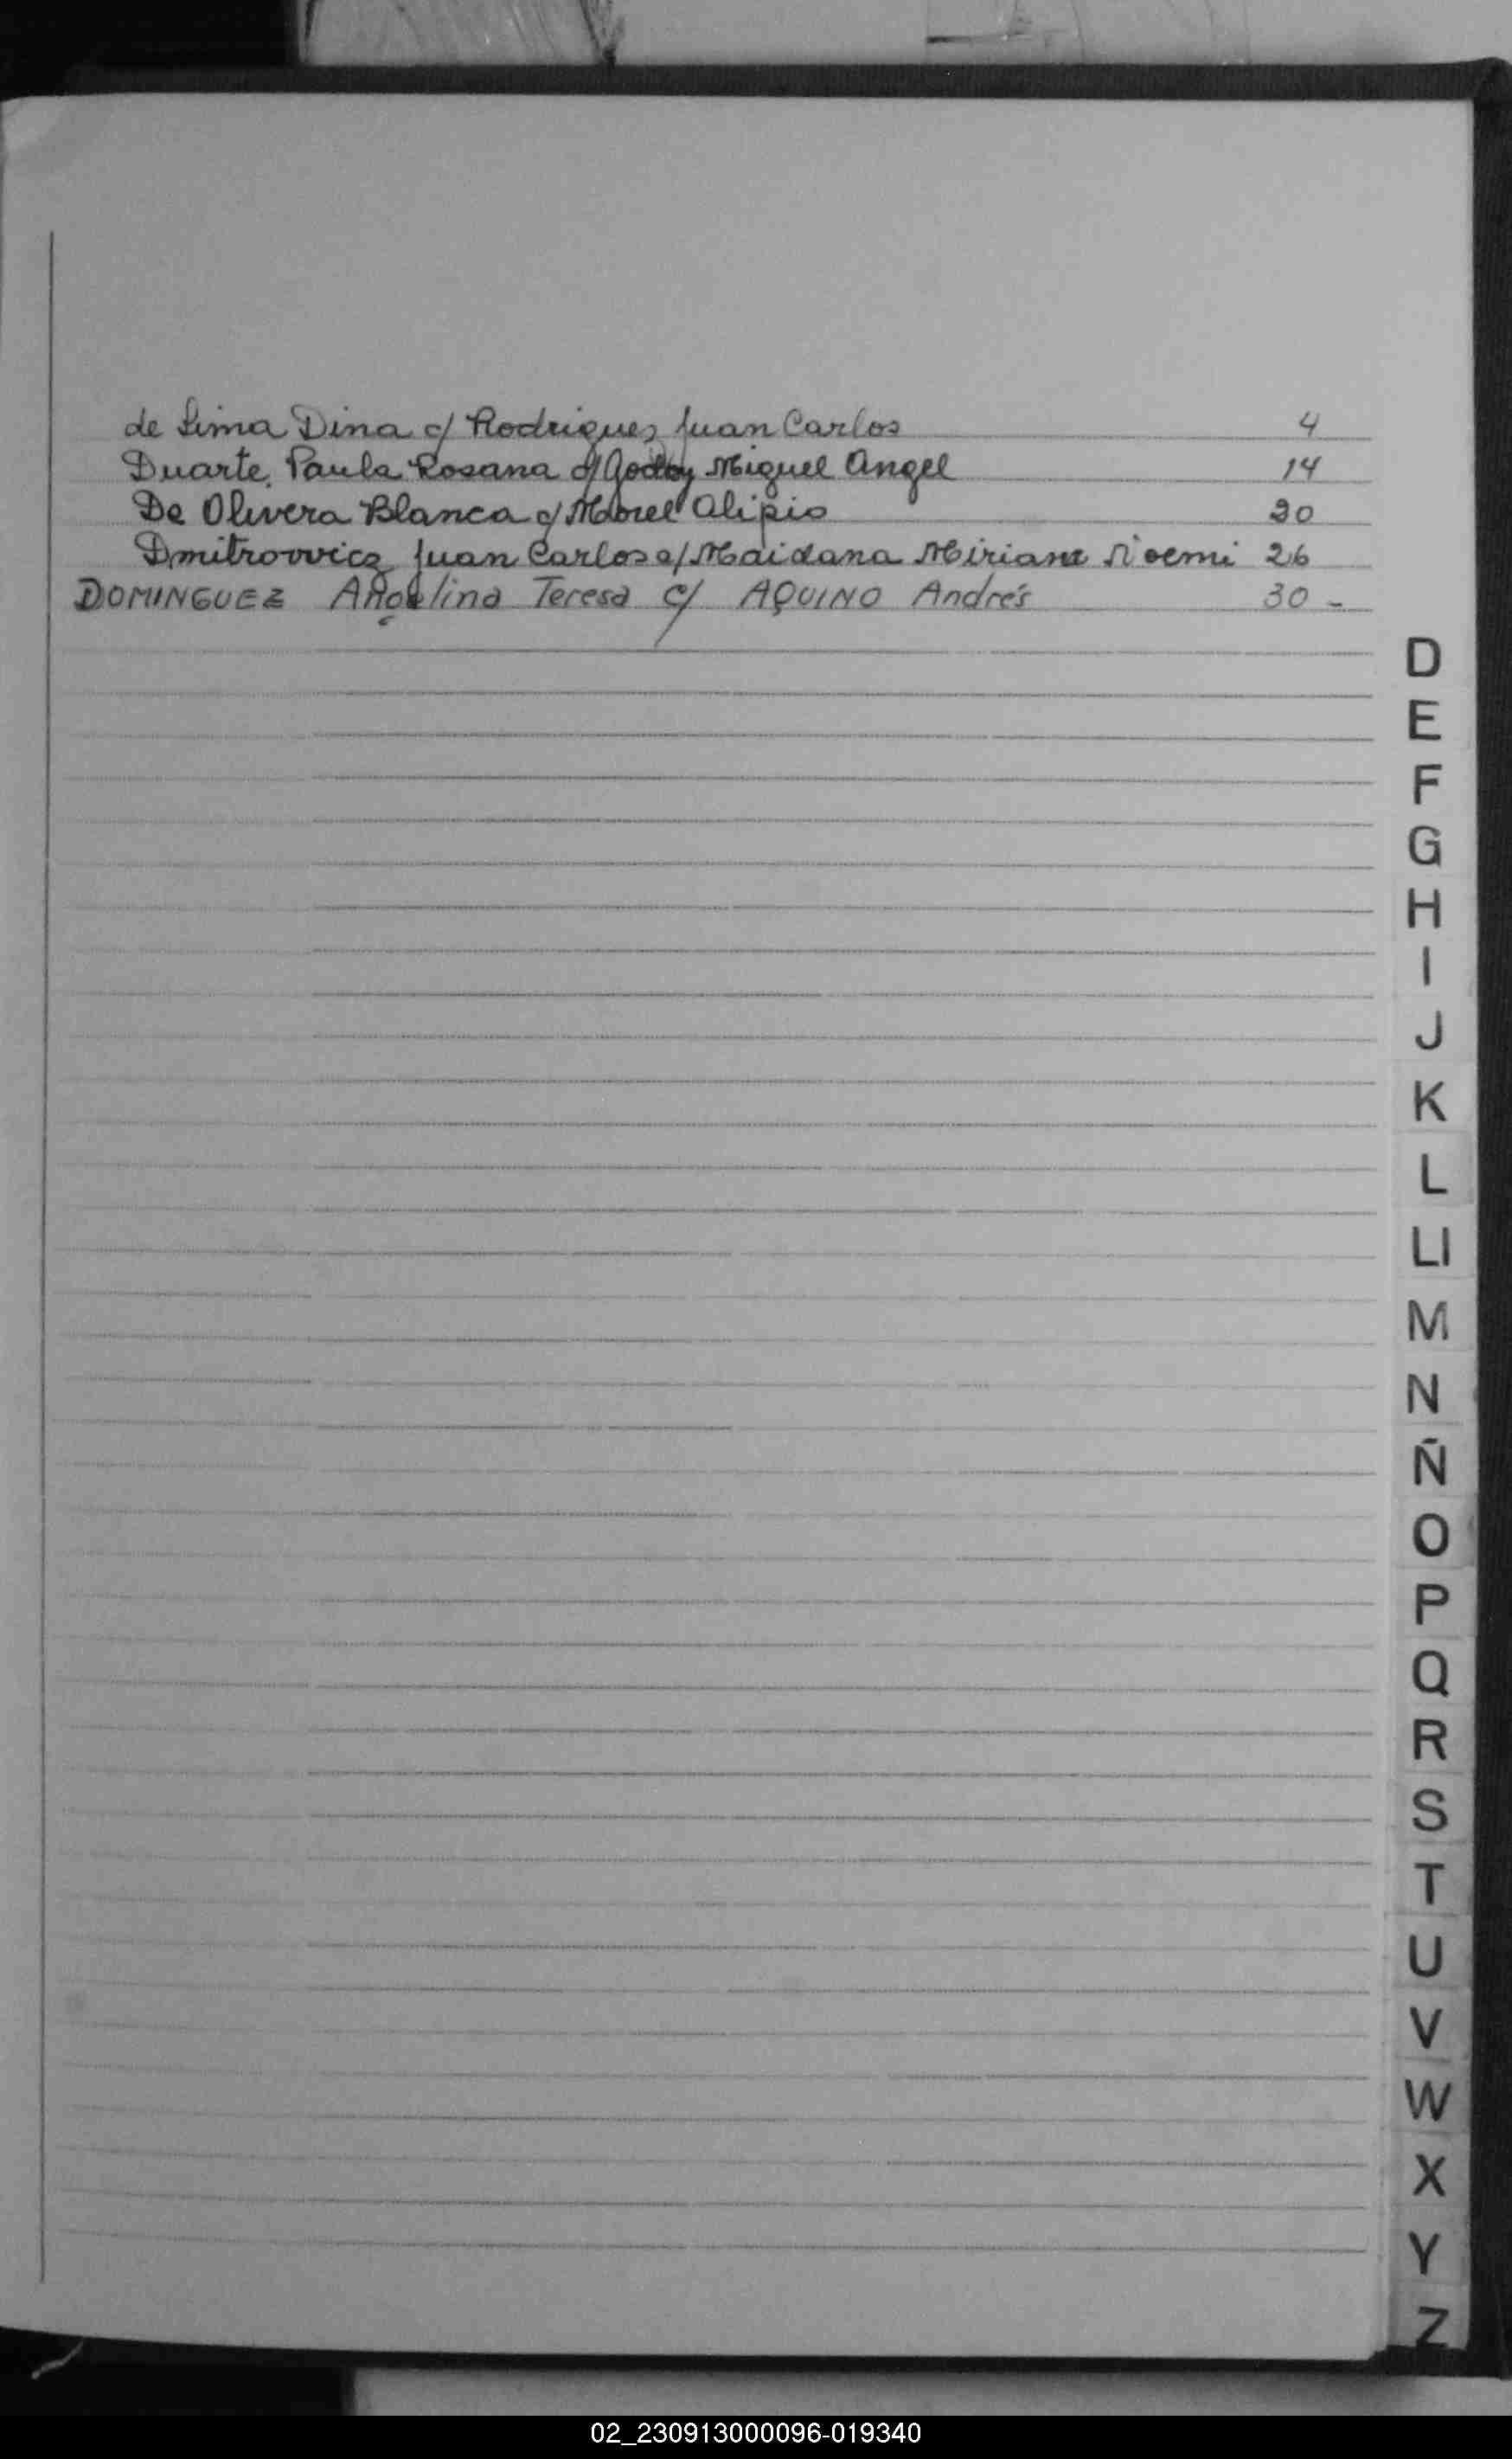 de Lima Dina c/ Rodriguez Juan Carlos 4
Duarte, Paula Rosana c/ Godoy Miguel Angel 14
De Olivera Blanca c/ Morel Alipio 20
Dmitrowicz Juan Carlos c/ Maidana Miriam Noemi 26
DOMINGUEZ Angelina Teresa c/ AQUINO Andrés 30 -
D
E
F
G
H
I
J
K
L
Ll
M
N
Ñ
O
P
Q
R
S
T
U
V
W
X
Y
Z
02_230913000096-019340